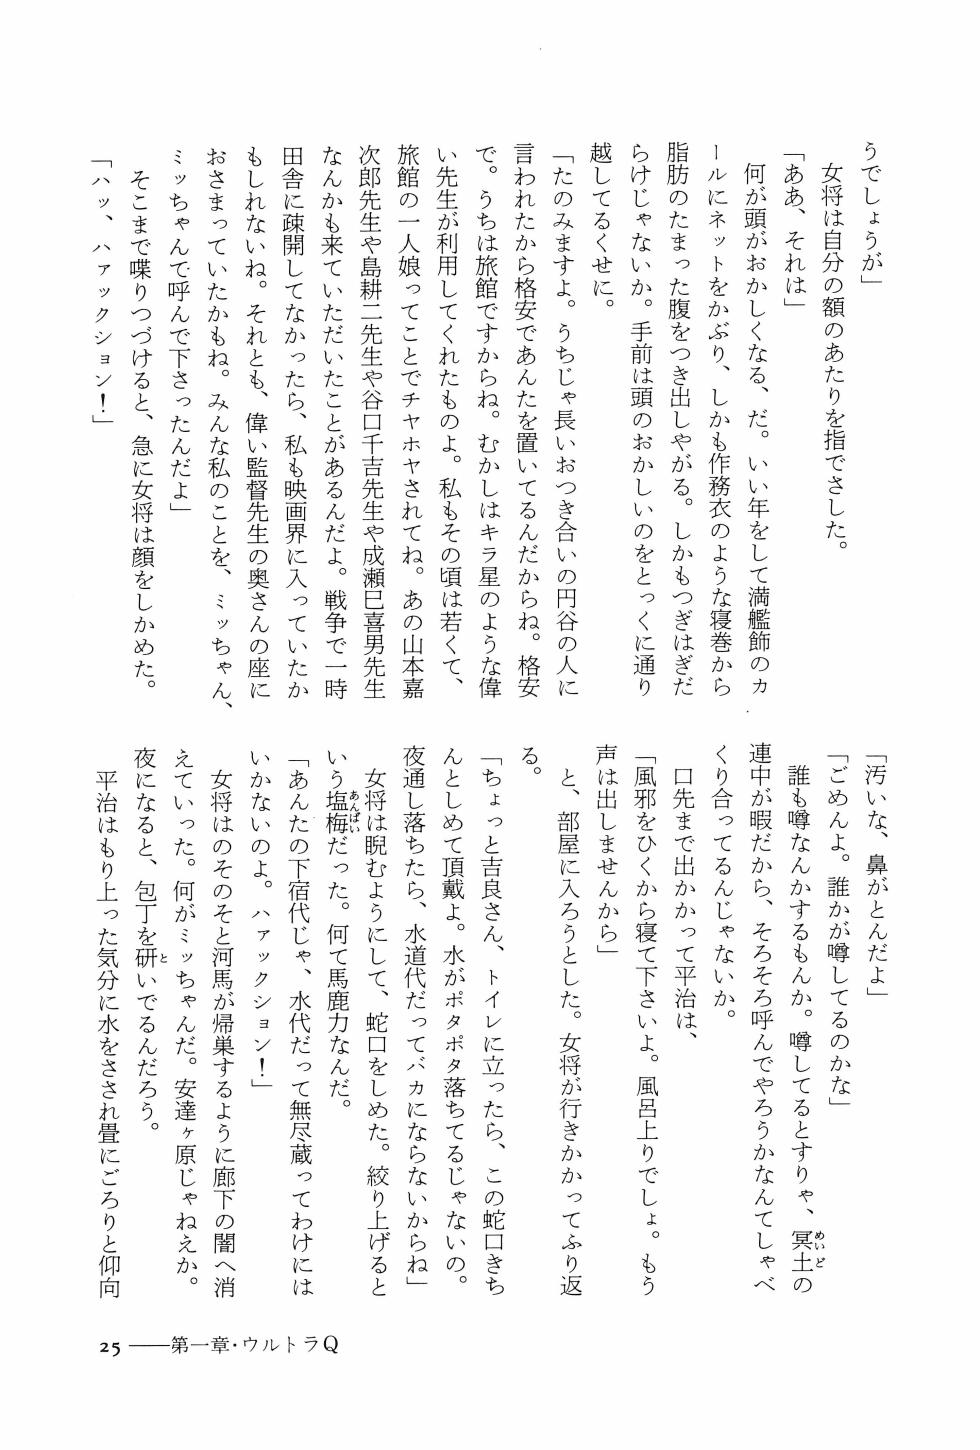 うでしょうが」
　女将は自分の額のあたりを指でさした。
「ああ、それは」
　何が頭がおかしくなる、だ。いい年をして満艦飾のカ
ールにネットをかぶり、しかも作務衣のような寝巻から
脂肪のたまった腹をつき出しやがる。しかもつぎはぎだ
らけじゃないか。手前は頭のおかしいのをとっくに通り
越してるくせに。
「たのみますよ。うちじゃ長いおつき合いの円谷の人に
言われたから格安であんたを置いてるんだからね。格安
で。うちは旅館ですからね。むかしはキラ星のような偉
い先生が利用してくれたものよ。私もその頃は若くて、
旅館の一人娘ってことでチヤホヤされてね。あの山本嘉
次郎先生や島耕二先生や谷口千吉先生や成瀬巳喜男先生
なんかも来ていただいたことがあるんだよ。戦争で一時
田舎に疎開してなかったら、私も映画界に入っていたか
もしれないね。それとも、偉い監督先生の奥さんの座に
おさまっていたかもね。みんな私のことを、ミッちゃん、
ミッちゃんで呼んで下さったんだよ」
　そこまで喋りつづけると、急に女将は顔をしかめた。
「ハッ、ハァックション！」
「汚いな、鼻がとんだよ」
「ごめんよ。誰かが噂してるのかな」
　誰も噂なんかするもんか。噂してるとすりゃ、冥土の
連中が暇だから、そろそろ呼んでやろうかなんてしゃべ
くり合ってるんじゃないか。
　口先まで出かかって平治は、
「風邪をひくから寝て下さいよ。風呂上りでしょ。もう
声は出しませんから」
　と、部屋に入ろうとした。女将が行きかかってふり返
る。
「ちょっと吉良さん、トイレに立ったら、この蛇口きち
んとしめて頂戴よ。水がポタポタ落ちてるじゃないの。
夜通し落ちたら、水道代だってバカにならないからね」
　女将は睨むようにして、蛇口をしめた。絞り上げると
いう塩梅だった。何て馬鹿力なんだ。
「あんたの下宿代じゃ、水代だって無尽蔵ってわけには
いかないのよ。ハァックション！」
　女将はのそのそと河馬が帰巣するように廊下の闇へ消
えていった。何がミッちゃんだ。安達ヶ原じゃねえか。
夜になると、包丁を研いでるんだろう。
　平治はもり上った気分に水をさされ畳にごろりと仰向
25 ――第一章・ウルトラQ